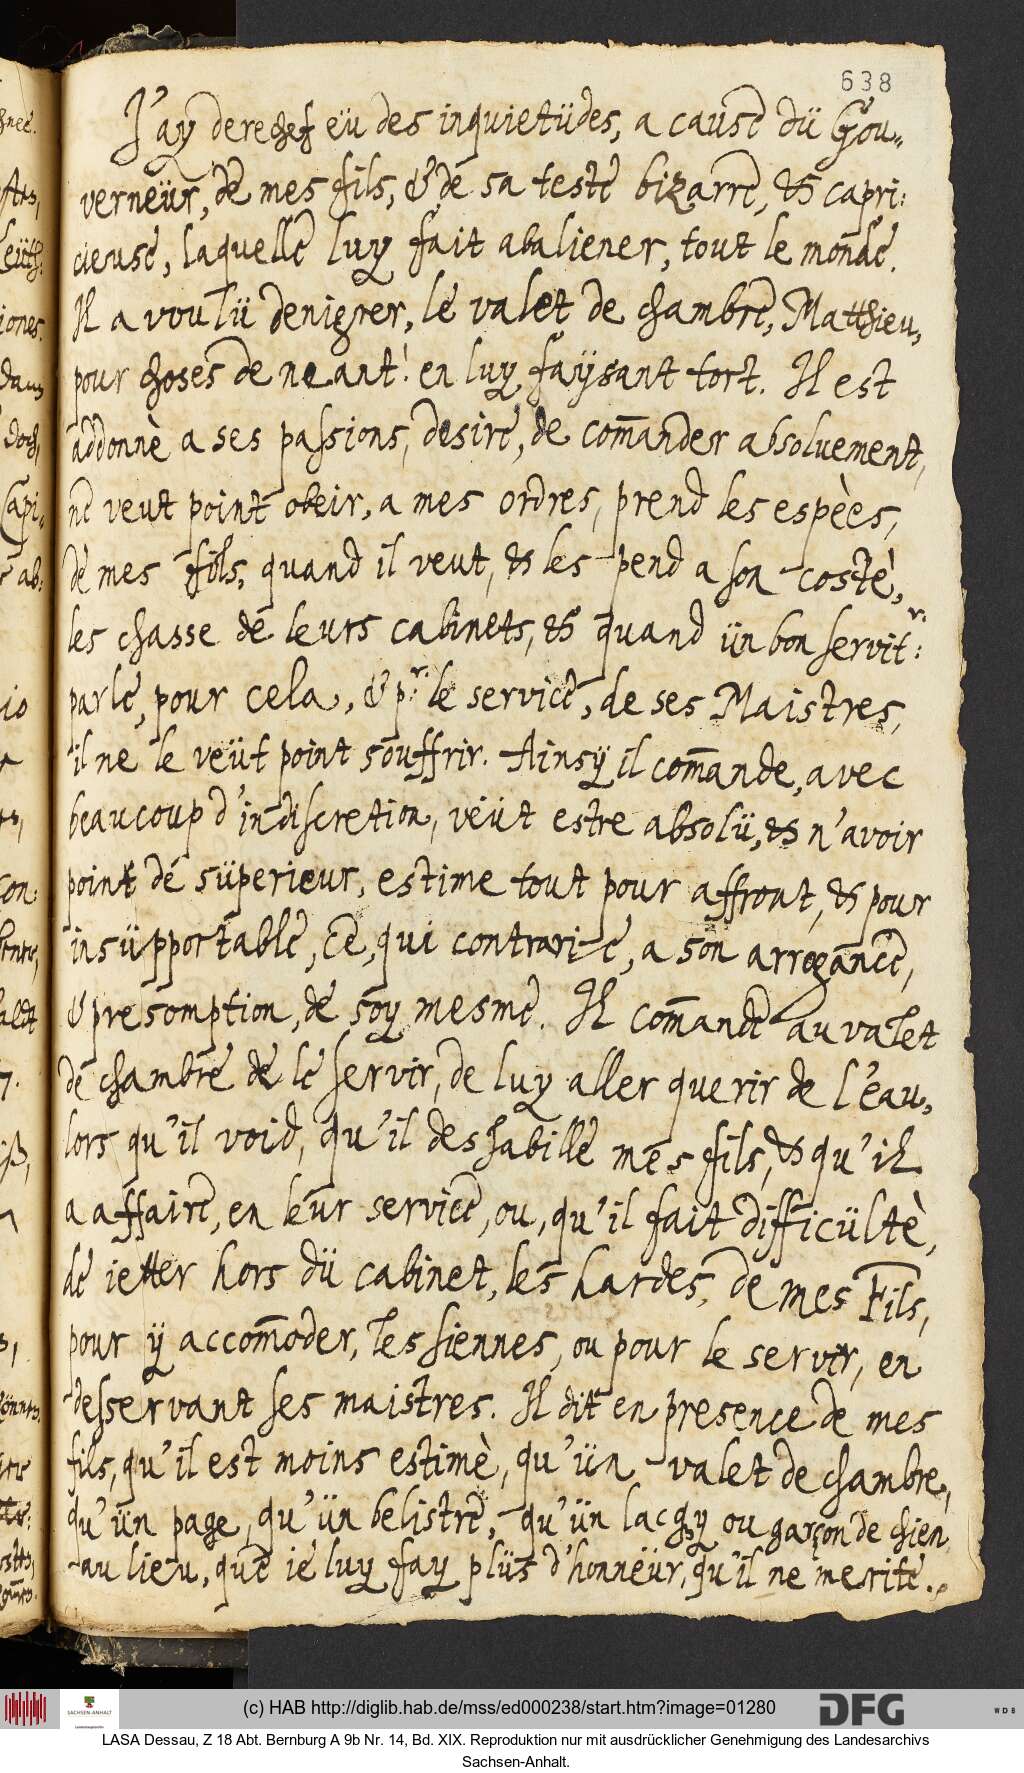 638
J'ay derechef eü des inquietüdes, a cause dü Gou-
verneür, de mes fils, & de sa teste bizarre, & capri:
cieuse, laquelle luy fait abaliener, tout le monde.
Il a voulü denigrer, le valet de chambre, Matthieu,
pour choses de neant! en luy faÿsant tort. Il est
addonnè a ses passions, desire, de com̄ander absoluement,
ne veut point obeir, a mes ordres, prend les espèes,
de mes fils, quand il veut, & les pend a son costè,
les chasse de leurs cabinets, & quand ün bon servit:r
parle, pour cela, & p:r le service, de ses Maistres,
il ne le veüt point souffrir. Ainsÿ il com̄ande, avec
beaucoup d'indiscretion, veüt estre absolü, & n'avoir
point de süperieur, estime tout pour affront, & pour
insüpportable, ce, qui contrarie, a son arrogance,
& presomption, de soy mesme. Il com̄ande au valet
de chambre de le servir, de luy aller querir de l'eau,
lors qu'il void, qu'il deshabille mes fils, & qu'il
a affaire, en leur service, ou, qu'il fait difficültè,
de ietter hors dü cabinet, les hardes, de mes Fils,
pour ÿ accom̄oder, les siennes, ou pour le servir, en
desservant ses maistres. Il dit en presence de mes
fils, qu'il est moins estimè, qu'ün valet de chambre,
qu'ün page, qu'ün belistre, qu'ün lacqy ou garçon de chien,
au lieu, que ie luy fay plüs d'honneür, qu'il ne merite.
(c) HAB http://diglib.hab.de/mss/ed000238/start.htm?image=01280
SACHSEN-ANHALT
DFG
WDB
LASA Dessau, Z 18 Abt. Bernburg A 9b Nr. 14, Bd. XIX. Reproduktion nur mit ausdrücklicher Genehmigung des Landesarchivs
Sachsen-Anhalt.